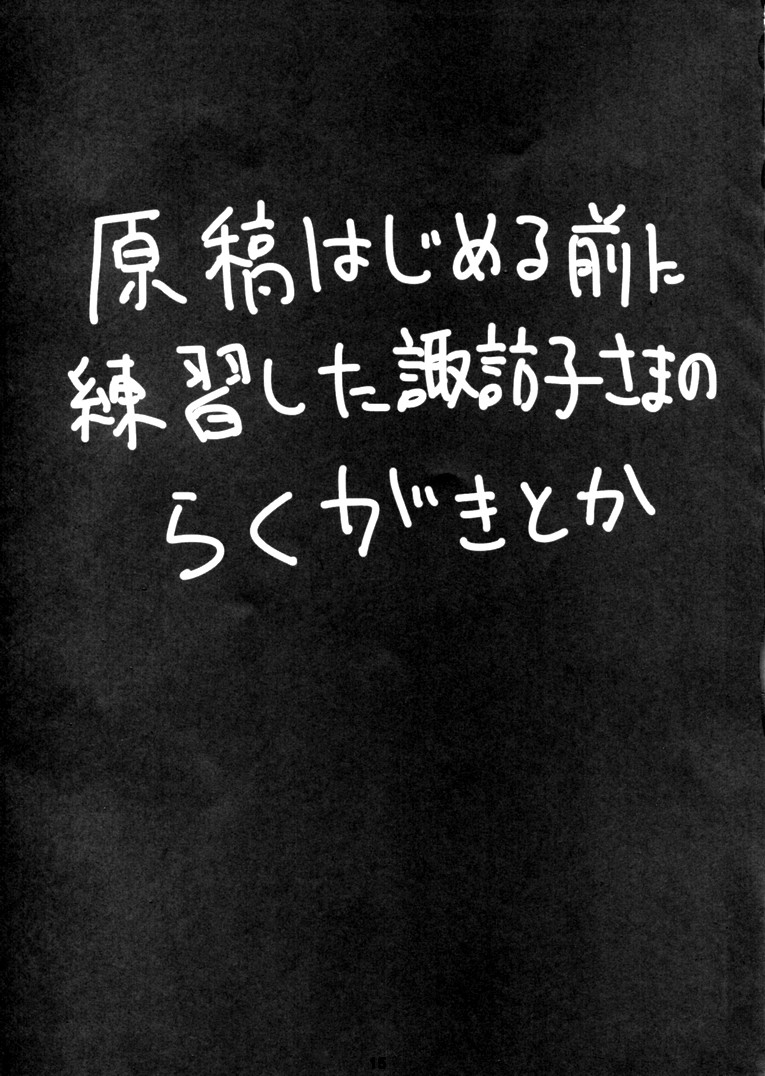 原稿はじめる前に
練習した諏訪子さまの
らくがきとか
15